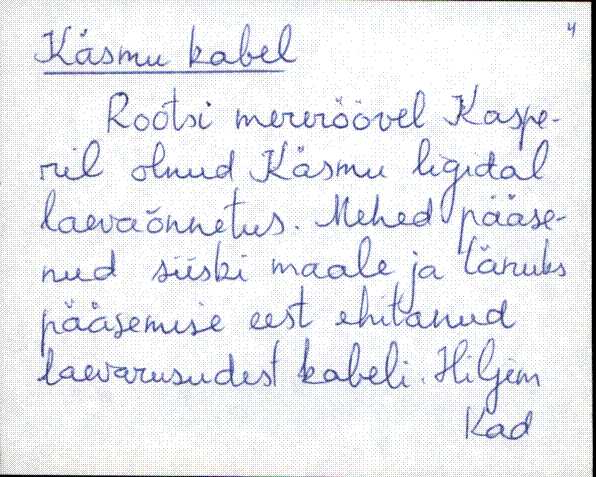 4
Käsmu kabel
Rootsi mereröövel Kaspe-
ril olnud Käsmu ligidal
laevaõnnetus. Mehed pääse-
nud siiski maale ja tänuks
pääsemise eest ehitanud
laevarusudest kabeli. Hiljem
Kad